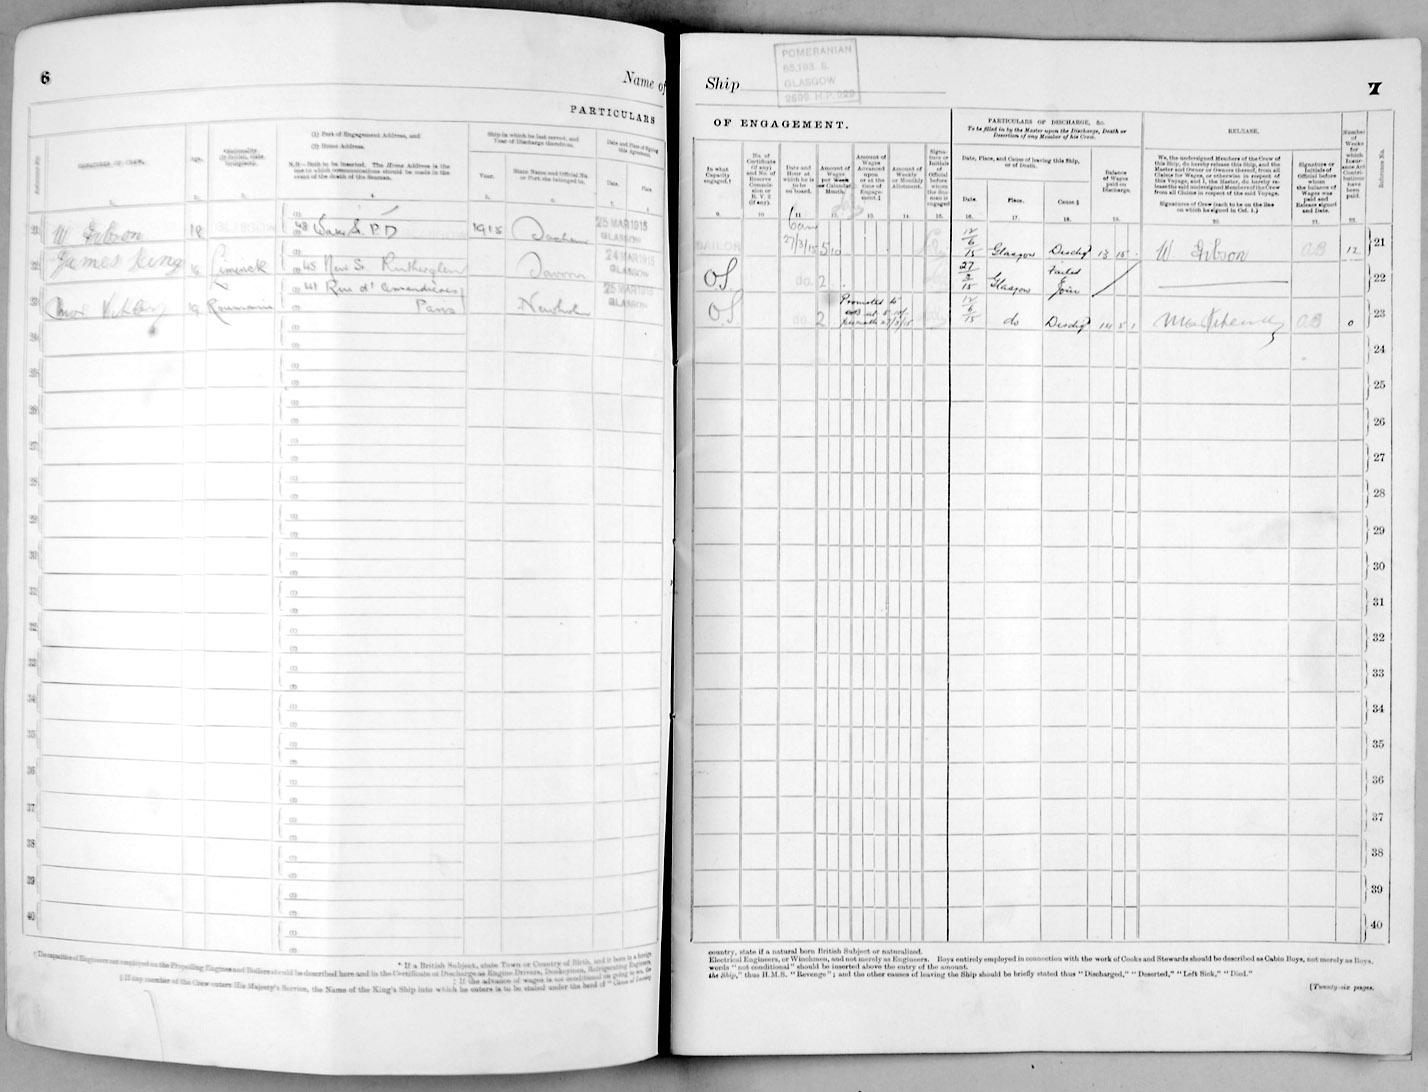 6
Name of
PARTICULARS
Reference No.
SIGNATURES OF CREW.
Age.
Nationality
(1) Port of Engagement Address, and
(2) Home Address.
N.B.—Both to be inserted. The Home Address is the
one to which communications should be made in the
event of the death of the Seaman.
Ship in which he last served, and
Year of Discharge therefrom.
Year.
State Name and Official No.
or Port she belonged to.
Date and Place of Signing
this Agreement.
Date.
Place
21 W Gibson 18 GLASGOW 1915 25 MAR 1915 GLASGOW
22 James King Limerick 45 New St. Rutherglen 24 MAR 1915 GLASGOW
23 19 Roumania 41 Rue d' Paris 25 MAR 1915 GLASGOW
24
25
26
27
28
29
30
31
32
33
34
35
36
37
38
39
40
* If a British Subject, state Town or Country of Birth, and if born in a foreign
† Occupation of Engineers not employed on the Propelling Engines and Boilers should be described here and in the Certificate of Discharge as Engine Drivers, Donkeymen, Refrigerating Engineers,
‡ If the advance of wages is not conditional on going to sea, the
§ If any member of the Crew enters His Majesty's Service, the Name of the King's Ship into which he enters is to be stated under the head of "Cause of Leaving
Ship
POMERANIAN
65,193. S.
GLASGOW
2699 H.P. 929
7
OF ENGAGEMENT.
In what
Capacity
engaged.†
No. of
Certificate
(if any)
and No. of
Reserve
Commis-
sion or
R. V. 2
(if any).
Date and
Hour at
which he is
to be
on board.
Amount of
Wages
per Week
or Calendar
Month.
Amount of
Wages
Advanced
upon
or at the
time of
Engage-
ment.‡
Amount of
Weekly
or Monthly
Allotment.
Signa-
ture or
Initials
of
Official
before
whom
the Sea-
man is
engaged
PARTICULARS OF DISCHARGE, &c.
To be filled in by the Master upon the Discharge, Death or
Desertion of any Member of his Crew.
Date, Place, and Cause of leaving this Ship,
or of Death.
Date.
Place.
Cause.§
Balance
of Wages
paid on
Discharge.
RELEASE.
We, the undersigned Members of the Crew of
this Ship, do hereby release this Ship, and the
Master and Owner or Owners thereof, from all
Claims for Wages, or otherwise in respect of
this Voyage, and I, the Master, do hereby re-
lease the said undersigned Members of the Crew
from all Claims in respect of the said Voyage.
Signatures of Crew (each to be on the line
on which he signed in Col. 1.)
Signature or
Initials of
Official before
whom
the balance of
Wages was
paid and
Release signed
and Date.
Number
of
Weeks
for
which
Insur-
ance Act
Contri-
butions
have
been
paid.
Reference No.
9. 10. 11 12. 13. 14. 15. 16. 17. 18. 19. 20. 21. 22.
SAILOR 6am 27/3/15 5 10 12/6/15 Glasgow Dischg'd 13 15 W Gibson 12 21
OS do. 2 27/3/15 Glasgow Failed Join 22
OS do. 2 Promoted to 12/6/15 do Dischg'd 14 5 1 0 23
24
25
26
27
28
29
30
31
32
33
34
35
36
37
38
39
40
country, state if a natural born British Subject or naturalized.
Electrical Engineers, or Winchmen, and not merely as Engineers. Boys entirely employed in connection with the work of Cooks and Stewards should be described as Cabin Boys, not merely as Boys.
words "not conditional" should be inserted above the entry of the amount.
the Ship," thus H.M.S. "Revenge"; and the other causes of leaving the Ship should be briefly stated thus "Discharged," "Deserted," "Left Sick," "Died."
[Twenty-six pages.